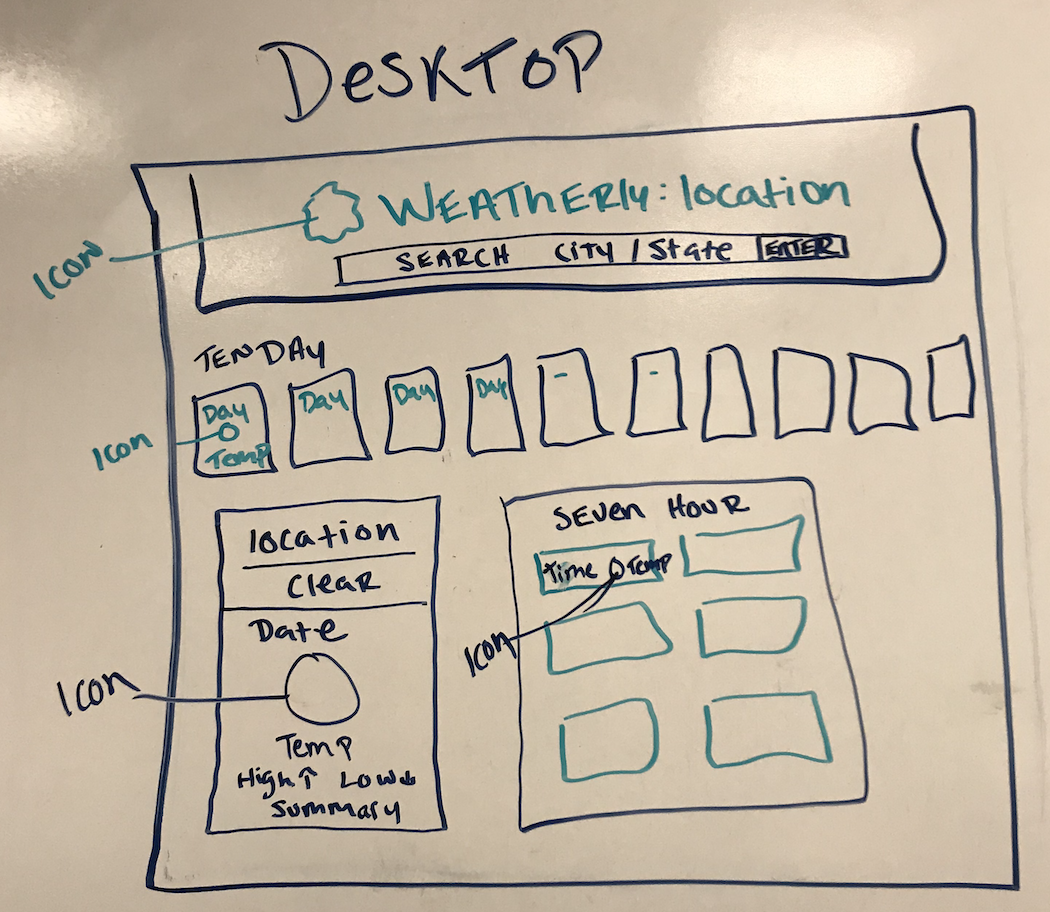 DESKTOP
WEATHERly: location
Icon
SEARCH City / State ENTER
TEN DAY
Day Day Day Day - -
Icon
Temp
location
Clear
Date
Icon
Temp
High↑ Low↓
Summary
SEVEN HOUR
Time Temp
Icon